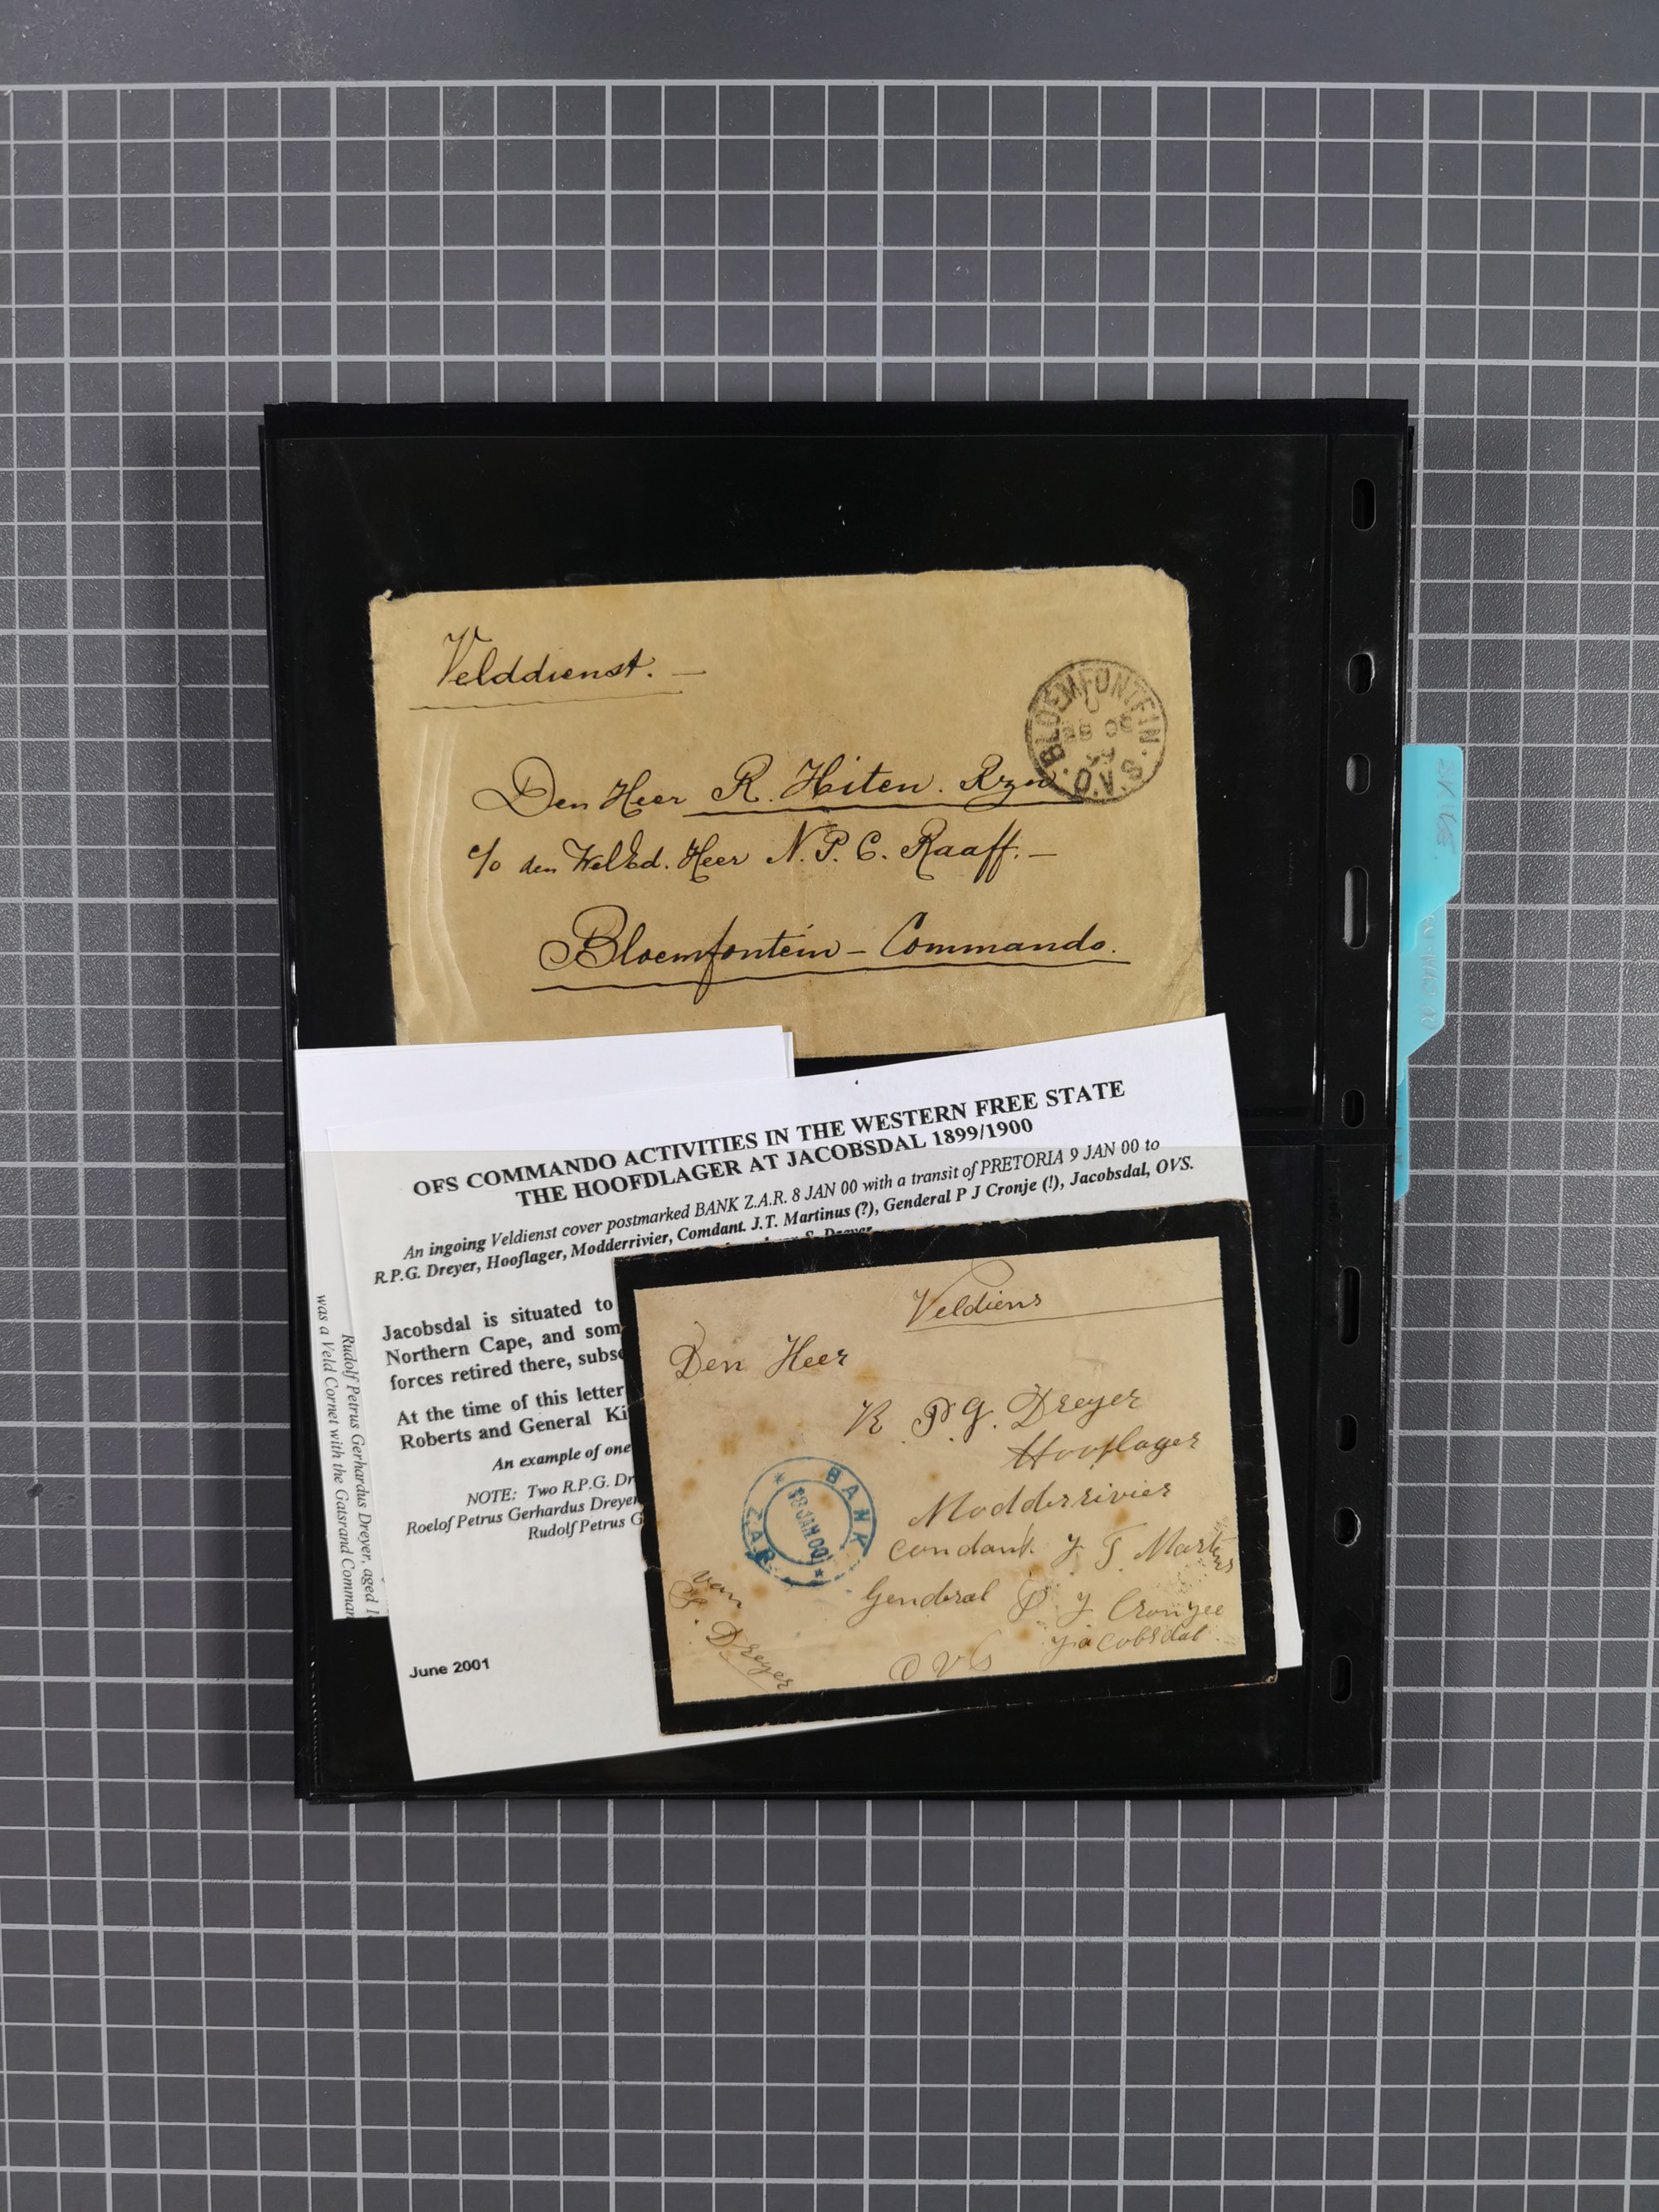 Velddienst. —
BLOEMFONTEIN
O.V.S.
Den Heer R. Hiten. Rzn
c/o den WelEd. Heer N. P. C. Raaff. —
Bloemfontein – Commando.
OFS COMMANDO ACTIVITIES IN THE WESTERN FREE STATE
THE HOOFDLAGER AT JACOBSDAL 1899/1900
An ingoing Veldienst cover postmarked BANK Z.A.R. 8 JAN 00 with a transit of PRETORIA 9 JAN 00 to
R.P.G. Dreyer, Hooflager, Modderrivier, Comdant. J.T. Martinus (?), Genderal P J Cronje (!), Jacobsdal, OVS.
S. Dreyer
Jacobsdal is situated to
Northern Cape, and som
forces retired there, subse
At the time of this letter
Roberts and General Ki
An example of one
NOTE: Two R.P.G. Dr
Roelof Petrus Gerhardus Dreyer
Rudolf Petrus G
June 2001
Rudolf Petrus Gerhardus Dreyer, aged 1
was a Veld Cornet with the Gatsrand Comman
Veldiens
Den Heer
R P. G. Dreyer
Hooflager
Modderrivier
Comdant. J T Martins
Genderal P J Cronjee
Jacobsdal
O V S
BANK
8 JAN.00
Z.A.R.
van
S. Dreyer